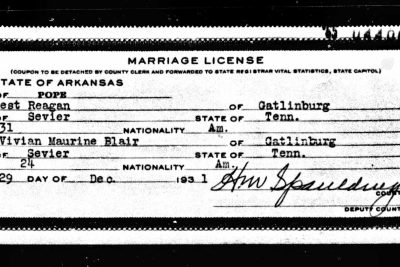 MARRIAGE LICENSE
(COUPON TO BE DETACHED BY COUNTY CLERK AND FORWARDED TO STATE REGISTRAR VITAL STATISTICS, STATE CAPITOL)
TATE OF ARKANSAS
OF POPE
est Reagan OF Gatlinburg
OF Sevier STATE OF Tenn.
31 NATIONALITY Am.
Vivian Maurine Blair OF Gatlinburg
OF Sevier STATE OF Tenn.
24 NATIONALITY Am.
29 DAY OF Dec. 1931
COUNT
DEPUTY COUNT